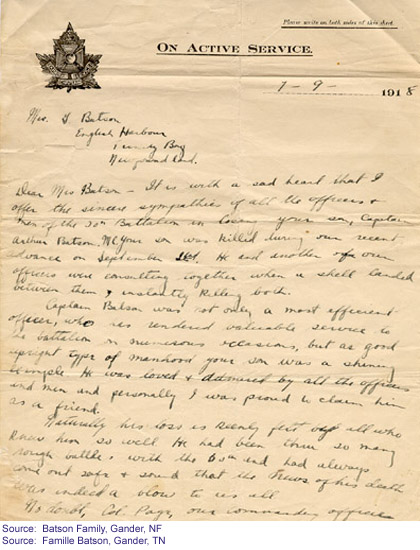 Please write on both sides of this sheet.
ON ACTIVE SERVICE.
7 - 9 - 1918
Mrs. J Batson
English Harbour
Trinity Bay
Newfoundland.
Dear Mrs Batson - It is with a sad heart that I
offer the sincere sympathies of all the officers &
men of the Battalion in losing your son, Captain
Arthur Batson, MC. Your son was killed during our recent
advance on September. He and another of our
officers were consulting together when a shell landed
between them & instantly killing both.
Captain Batson was not only a most efficient
officer, who has rendered valuable service to
his battalion on numerous occasions, but as good
upright type of manhood your son was a shining
example. He was loved & admired by all the officers
and men and personally I was proud to claim him
as a friend.
Naturally his loss is keenly felt by all who
knew him so well. He had been thru so many
rough battles with the Bn and had always
come out safe & sound that the news of his death
was indeed a blow to us all
No doubt, Col. Page, our commanding officer
Source: Batson Family, Gander, NF
Source: Famille Batson, Gander, TN